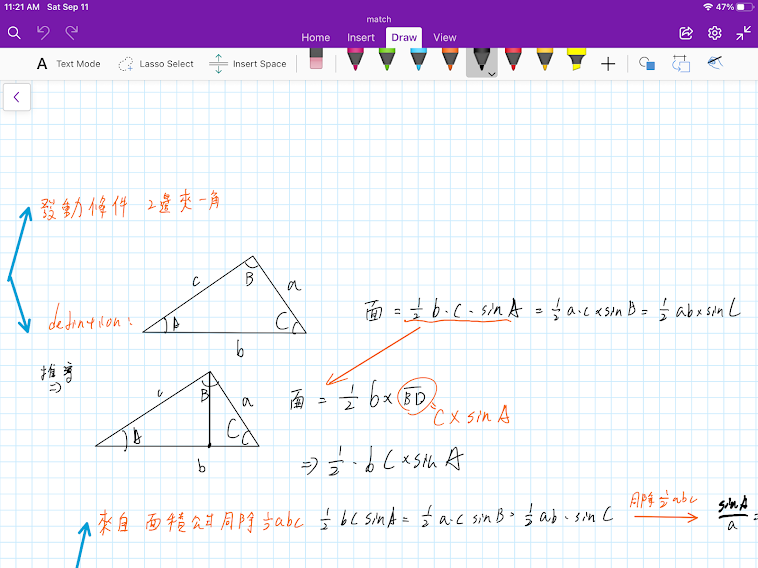 11:21 AM Sat Sep 11
47%
match
Home Insert Draw View
A Text Mode Lasso Select Insert Space
發動條件 2邊夾一角
c B a
definition: A C
b
面 = 1/2 b·c·sinA = 1/2 a·c×sinB = 1/2 ab×sinC
推導
⇒
c B a
A C
b
面 = 1/2 b× BD = c×sinA
⇒ 1/2·bc×sinA
來自 面積公式 同除 1/2abc 1/2 bc sinA = 1/2 a·c sinB = 1/2 ab·sinC 同除 1/2 abc sinA/a =